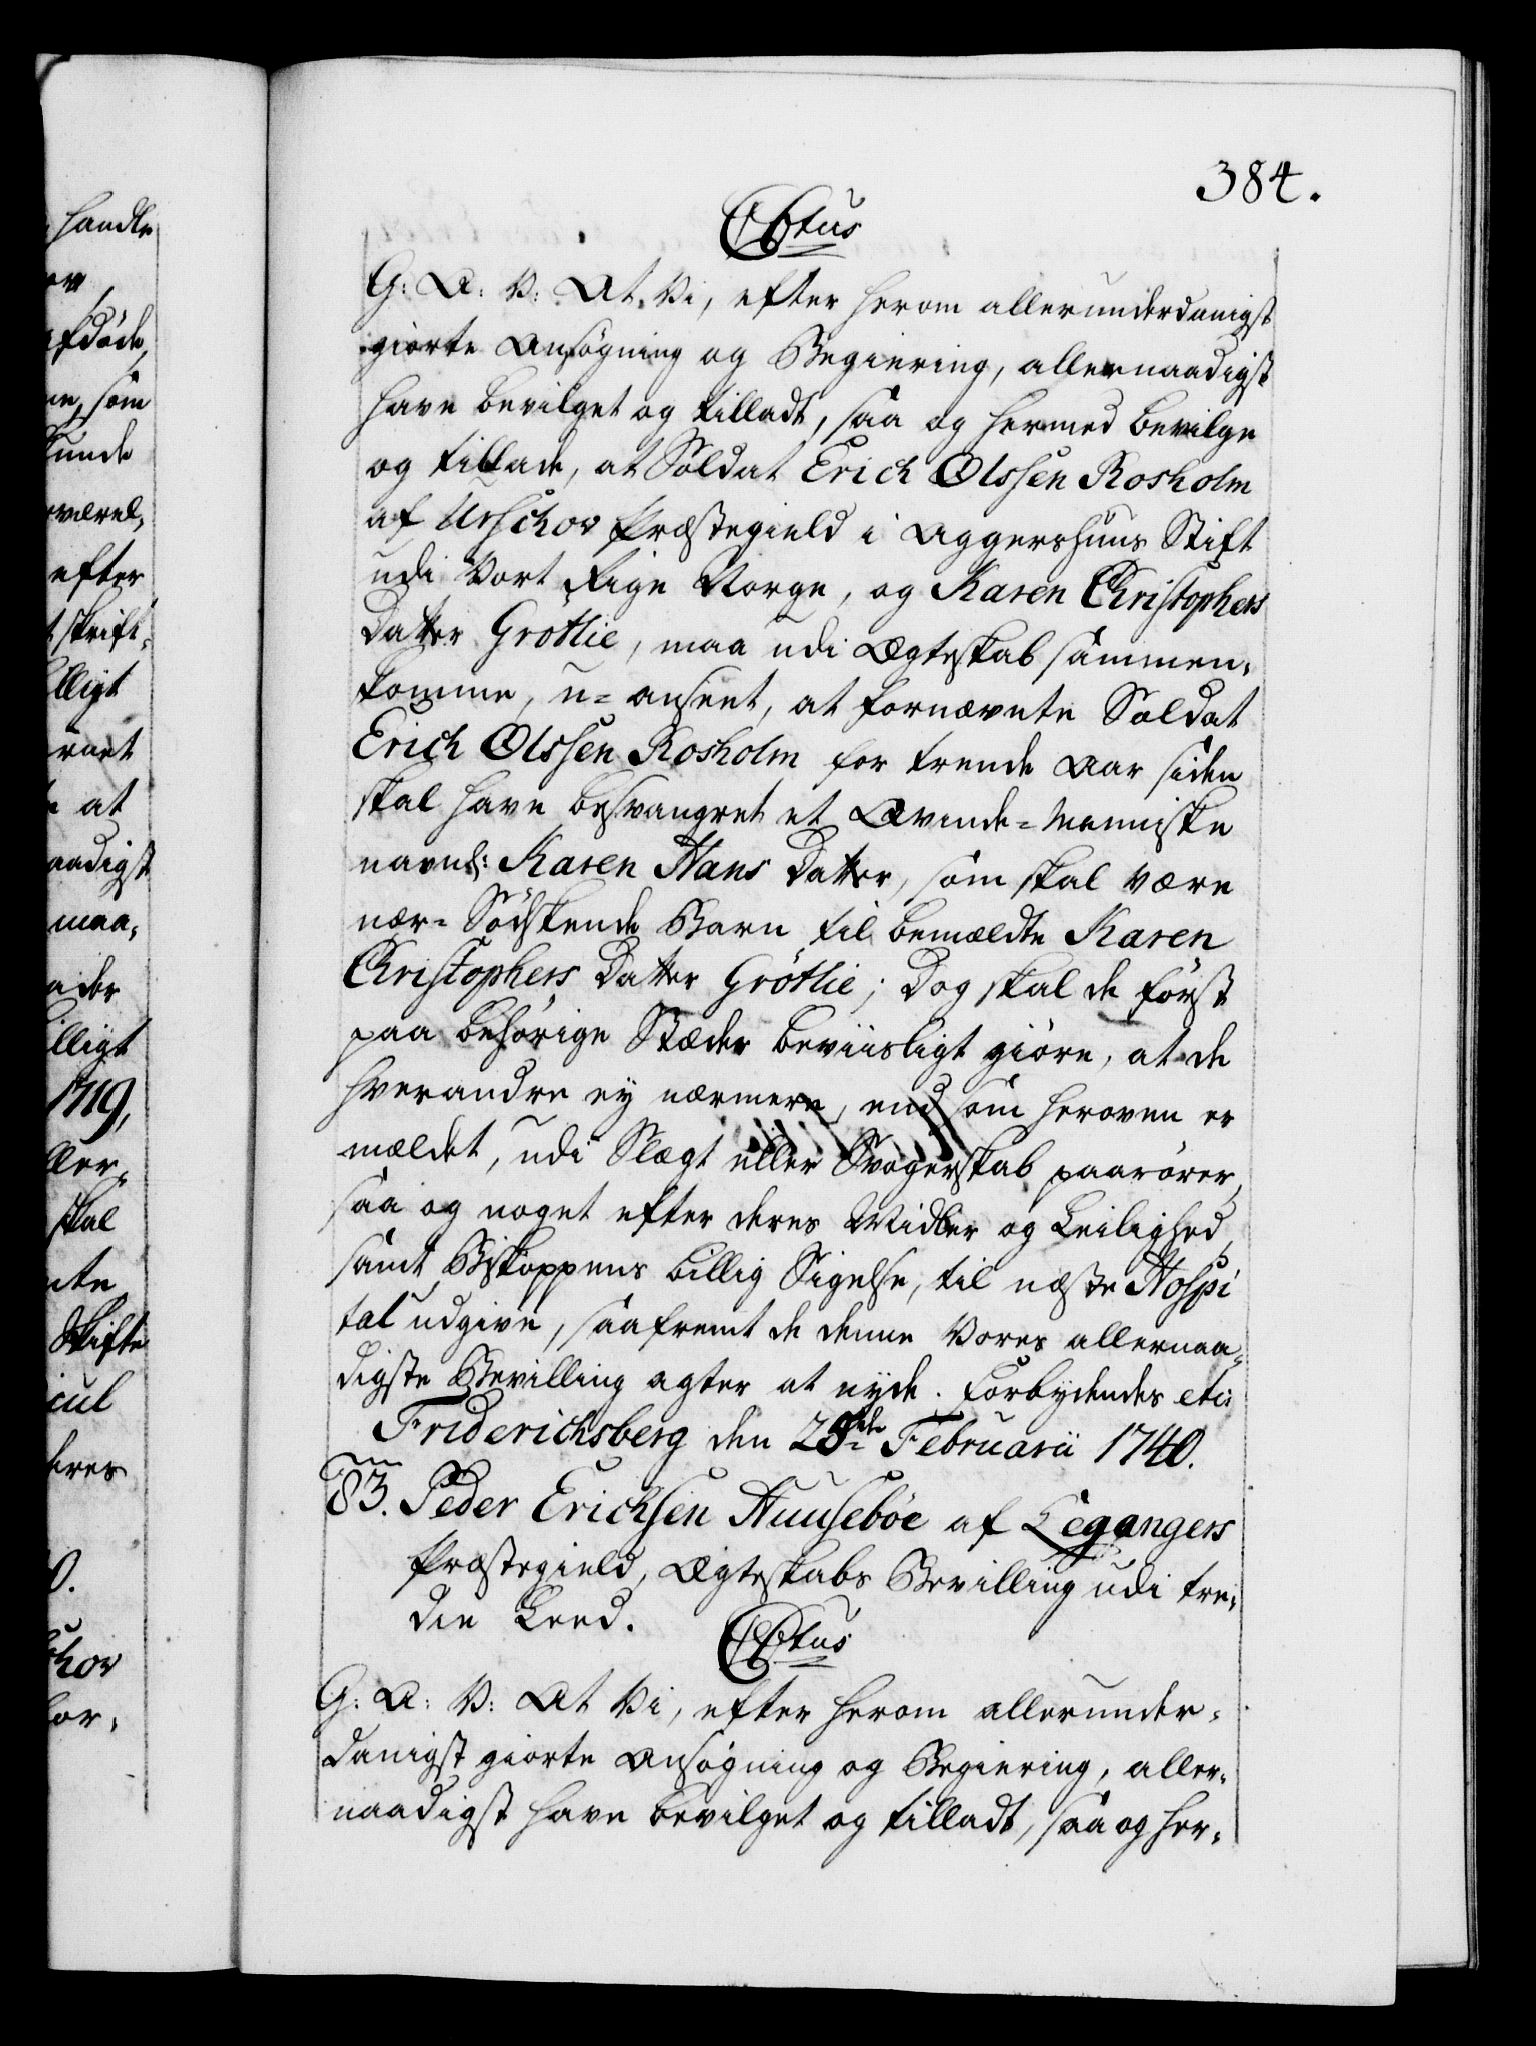 384.
C6tus
G: A: V: At Vi, efter herom allerunderdanigst
giorte Ansøgning og Begiering, allernaadigst
have bevilget og tilladt, saa og hermed bevilge
og tillade, at Soldat Erich Olssen Rosholm
af Urschov Præstegield i Aggershuus Stift
udi Vort Rige Norge, og Karen Christophers
Datter Grøtlie, maa udi Ægteskab sammen-
komme, u-anseet, at fornævnte Soldat
Erich Olssen Rosholm for trende Aar siden
skal have besvangret et Qvinde-Menniske
navnl: Karen Hans Datter, som skal være
nær-Sødskende Barn til bemældte Karen
Christophers Datter Grøtlie; Dog skal de først
paa behørige Stæder beviisligt giøre, at de
hverandre ey nærmere, end som heroven er
mældet, udi Slægt eller Svogerskab paarører,
saa og noget efter deres Midler og Leilighed,
samt Biskoppens billig Sigelse, til næste Hospi
tal udgive, saafremt de denne Vores allernaa-
digste Bevilling agter at nyde. Forbydendes etc:
Friderichsberg den 25de Februarii 1740.
83. Peder Erichsen Huusebøe af Legangers
Præstegield, Ægteskabs Bevilling udi tre-
die Leed.
C6tus
G: A: V: At Vi, efter herom allerunder-
danigst giorte Ansøgning og Begiering, aller-
naadigst have bevilget og tilladt, saa og her-